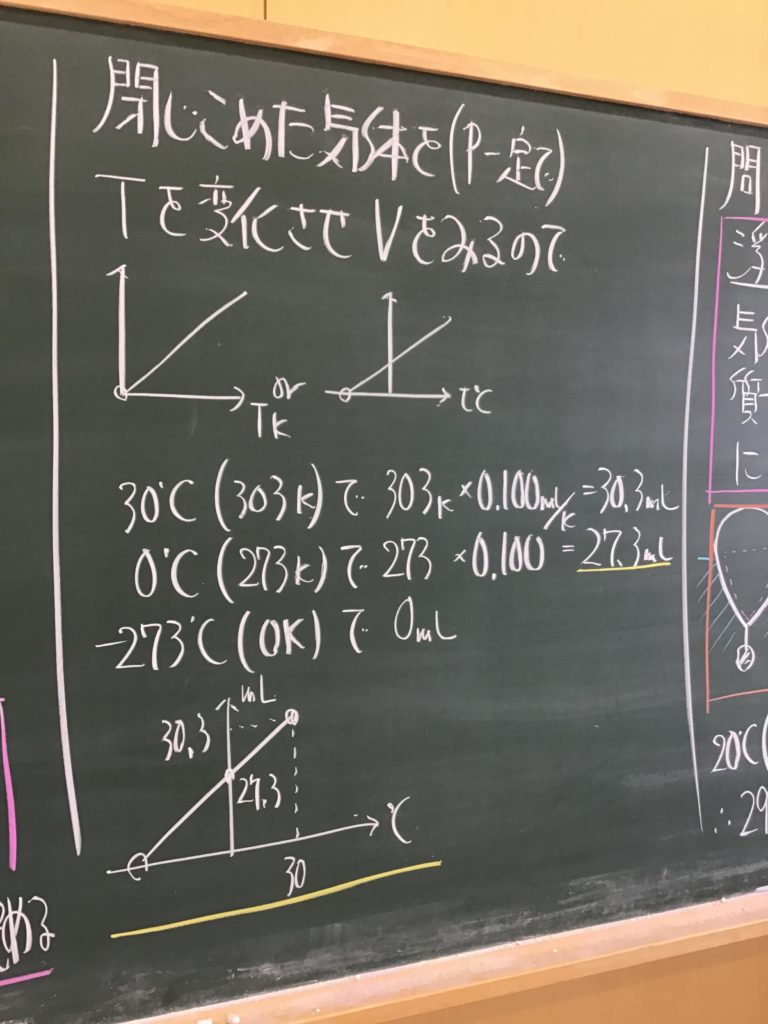 閉じこめた気体を(P一定で)
Tを変化させVをみるので
or
TK
t℃
30℃(303K)で 303K×0.100mL/K=30.3mL
0℃(273K)で 273 ×0.100 = 27.3mL
-273℃(0K)で 0mL
mL
30.3
27.3
℃
30
問
浮
気
質
に
20℃(
∴29
める